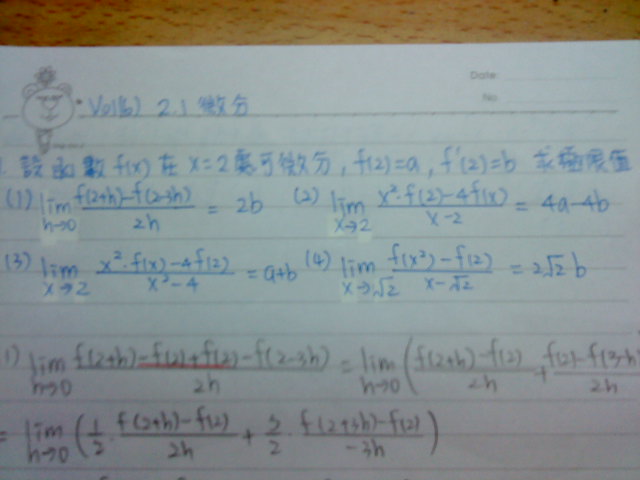 Date:
No
Vol(6) 2.1 微分
1. 設函數 f(x) 在 x=2 處可微分, f(2)=a, f'(2)=b 求極限值
(1) lim h→0 f(2+h)-f(2-3h) / 2h = 2b (2) lim x→2 x²·f(2)-4f(x) / x-2 = 4a-4b
(3) lim x→2 x²·f(x)-4f(2) / x²-4 = a+b (4) lim x→√2 f(x²)-f(2) / x-√2 = 2√2 b
1) lim h→0 f(2+h)-f(2)+f(2)-f(2-3h) / 2h = lim h→0 ( f(2+h)-f(2) / 2h + f(2)-f(3-h / 2h
= lim h→0 ( 1/2 · f(2+h)-f(2) / 2h + 3/2 · f(2+3h)-f(2) / -3h )